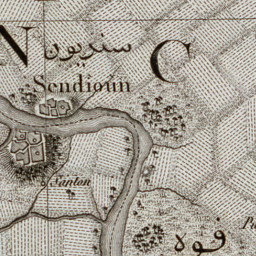 N C
سنديون
Sendioun
Santon
فوه